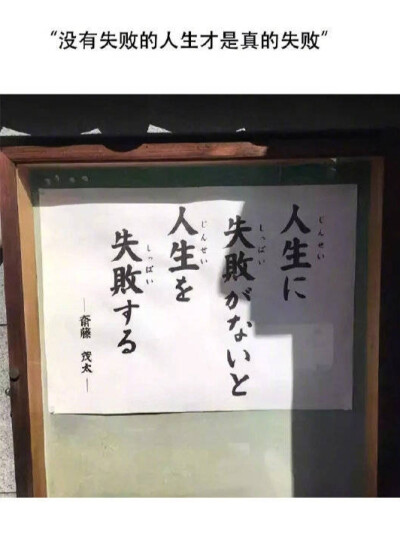 “没有失败的人生才是真的失败”
人生に
じんせい
失敗がないと
しっぱい
人生を
じんせい
失敗する
しっぱい
―斎藤 茂太―